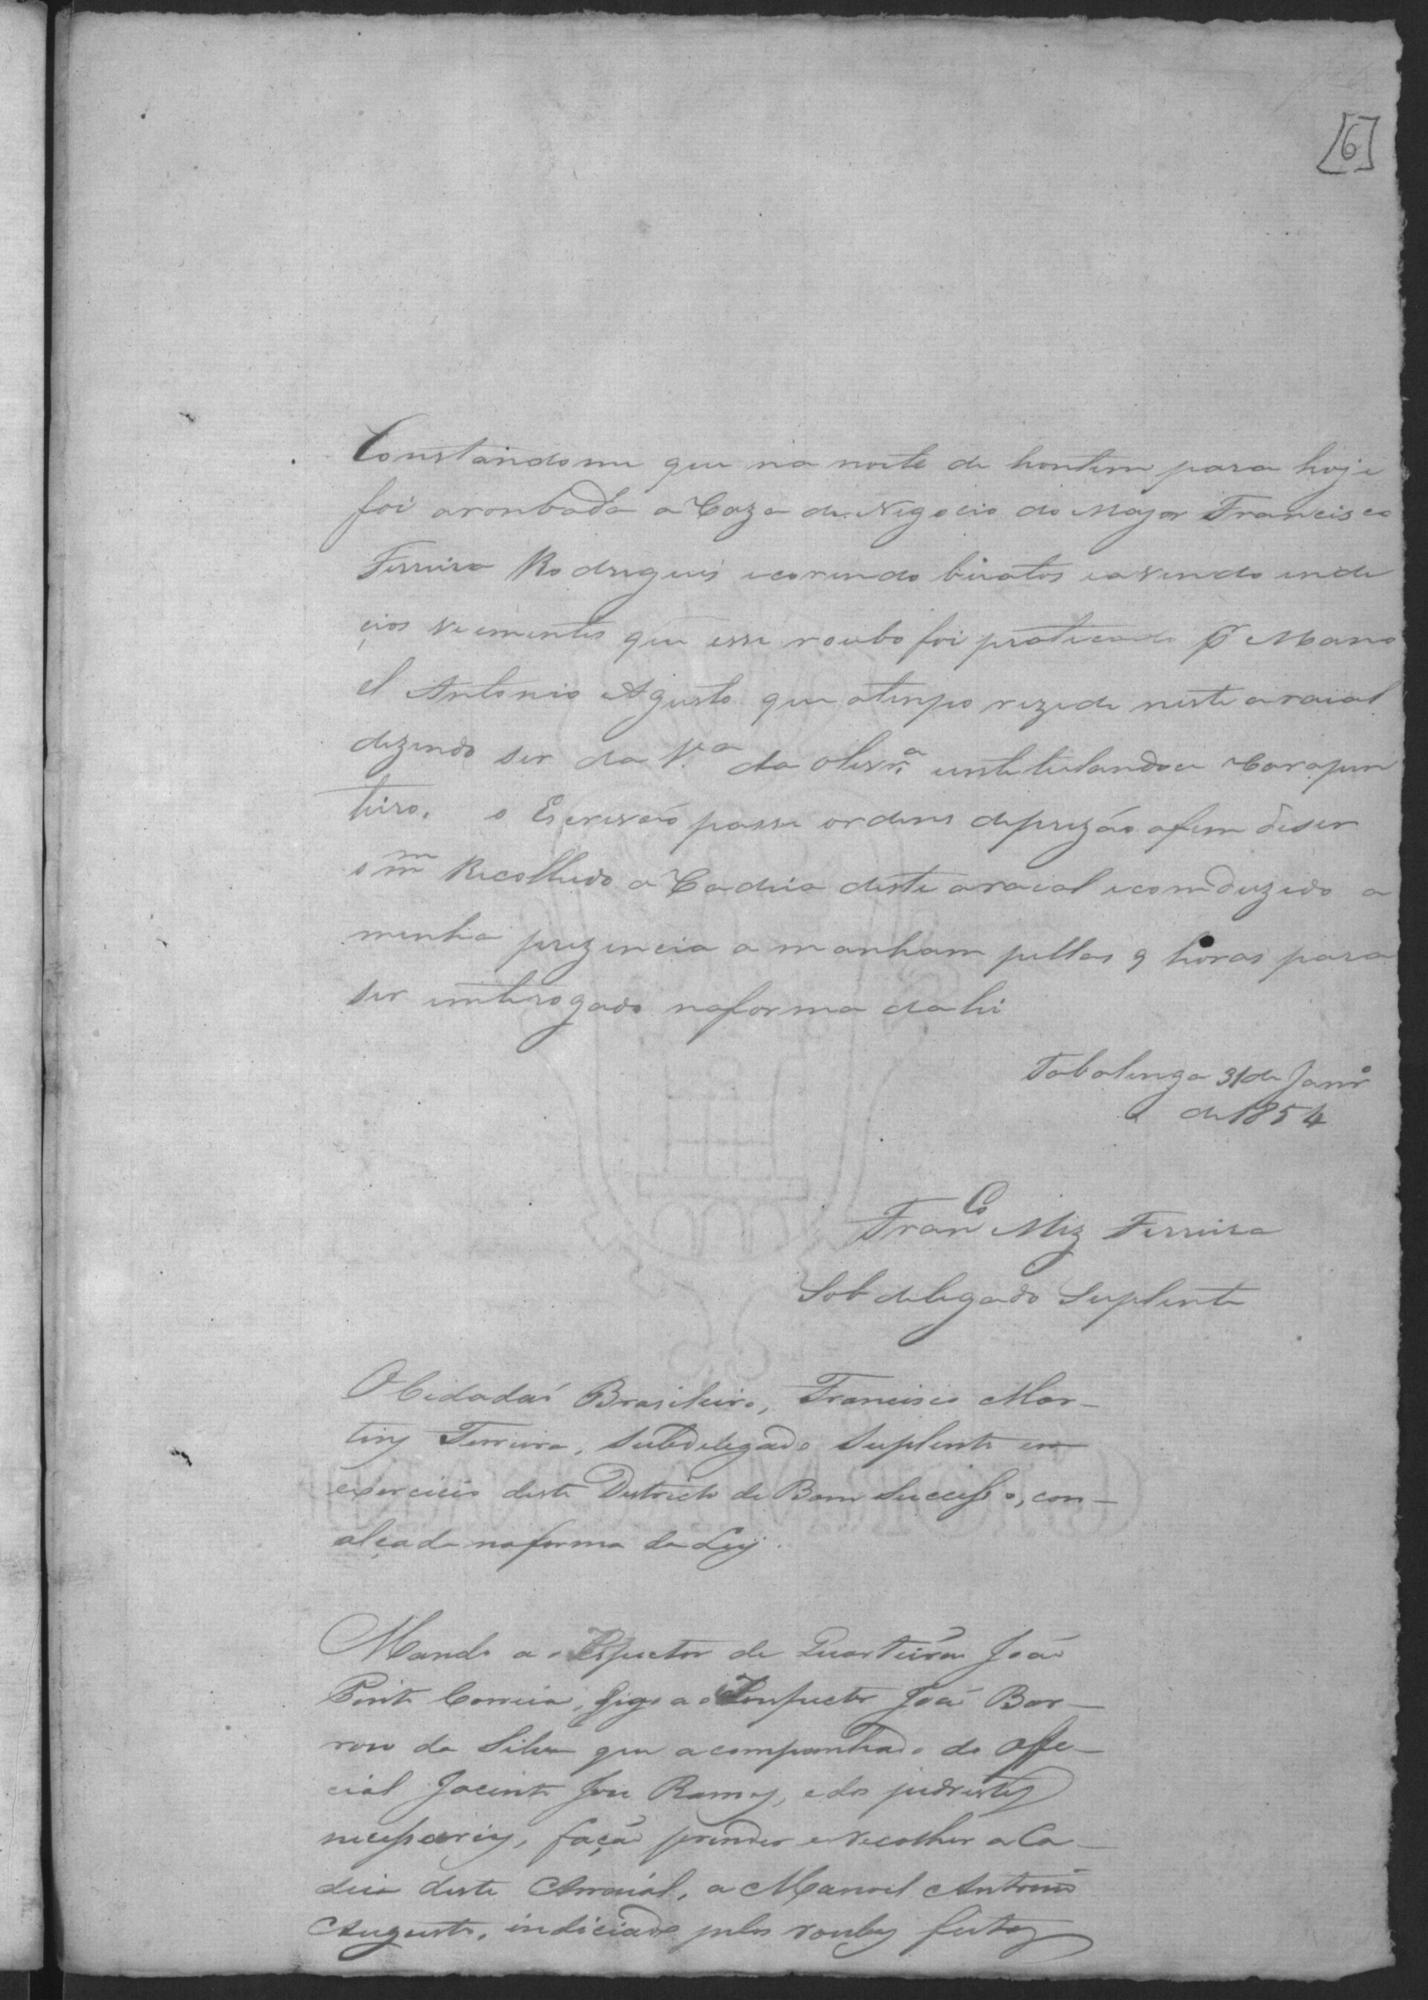 [6]
Constandome que na noite de hontem para hoje
foi aronbada a Caza de Negocio do Major Francisco
Ferreira Rodrigues ecorendo buatos eavendo inde
cios veementes que esse roubo foi praticado pr Mano
el Antonio Agusto que atempo rezide neste araial
dizendo ser da Va da olivra entitulandoce Carapin
teiro. o Escrivaõ passe ordens deprizão afim deser
omm Recolhido a Cadeia deste araial econduzido a
minha prezencia a manham pellas 9 horas para
ser enterogado naforma da lei
Tabatinga 31 de Janro
de 1854
Franco Miz Ferreira
Sobdelegado Suplente
O Cidadaõ Brasileiro, Francisco Mar-
tins Ferreira, Subdelegado Suplente em
exercicio deste Districto de Bom Successo, com
alçada naforma da Ley.
Mando a o Espector de Quarteiraõ Joaõ
Pinto Correia, digo a o Inspector Joaõ Bar-
rozo da Silva que acompanhado do offe-
cial Jacinto Jose Ramos, e dos pedrestes
necessarios, façaõ prender e recolher a Ca-
deia deste Arraial, a Manoel Antonio
Augusto, indiciado pelos roubos feitos